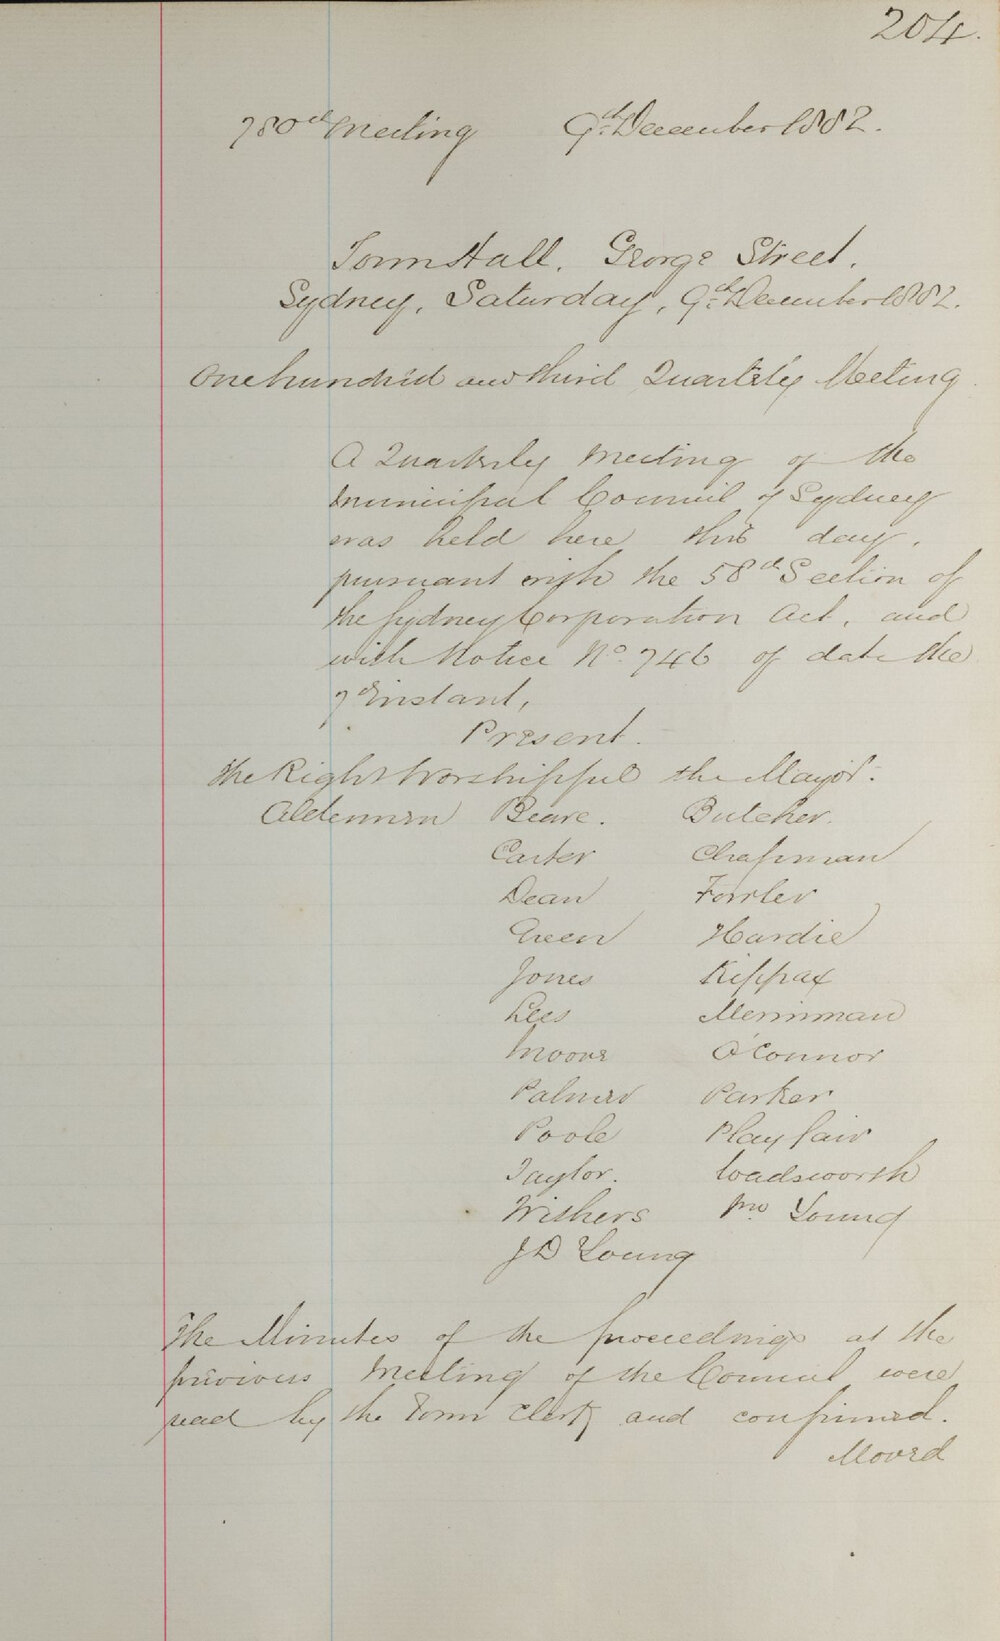 204.
780th Meeting 9th December 1882.
Town Hall. George Street.
Sydney, Saturday, 9th December 1882.
One hundred and third Quarterly Meeting
A Quarterly Meeting of the
Municipal Council of Sydney
was held here this day,
pursuant with the 58th Section of
the Sydney Corporation Act, and
with Notice No. 746 of date the
7th Instant,
Present.
The Right Worshipful the Mayor.
Aldermen Beare. Butcher.
Carter Chapman
Dean Fowler
Green Hardie
Jones Kippax
Lees Merriman
Moore O'Connor
Palmer Parker
Poole Playfair
Taylor. Wadsworth
Withers Young
J D Young
The Minutes of the proceedings at the
previous Meeting of the Council were
read by the Town Clerk and confirmed.
Moved